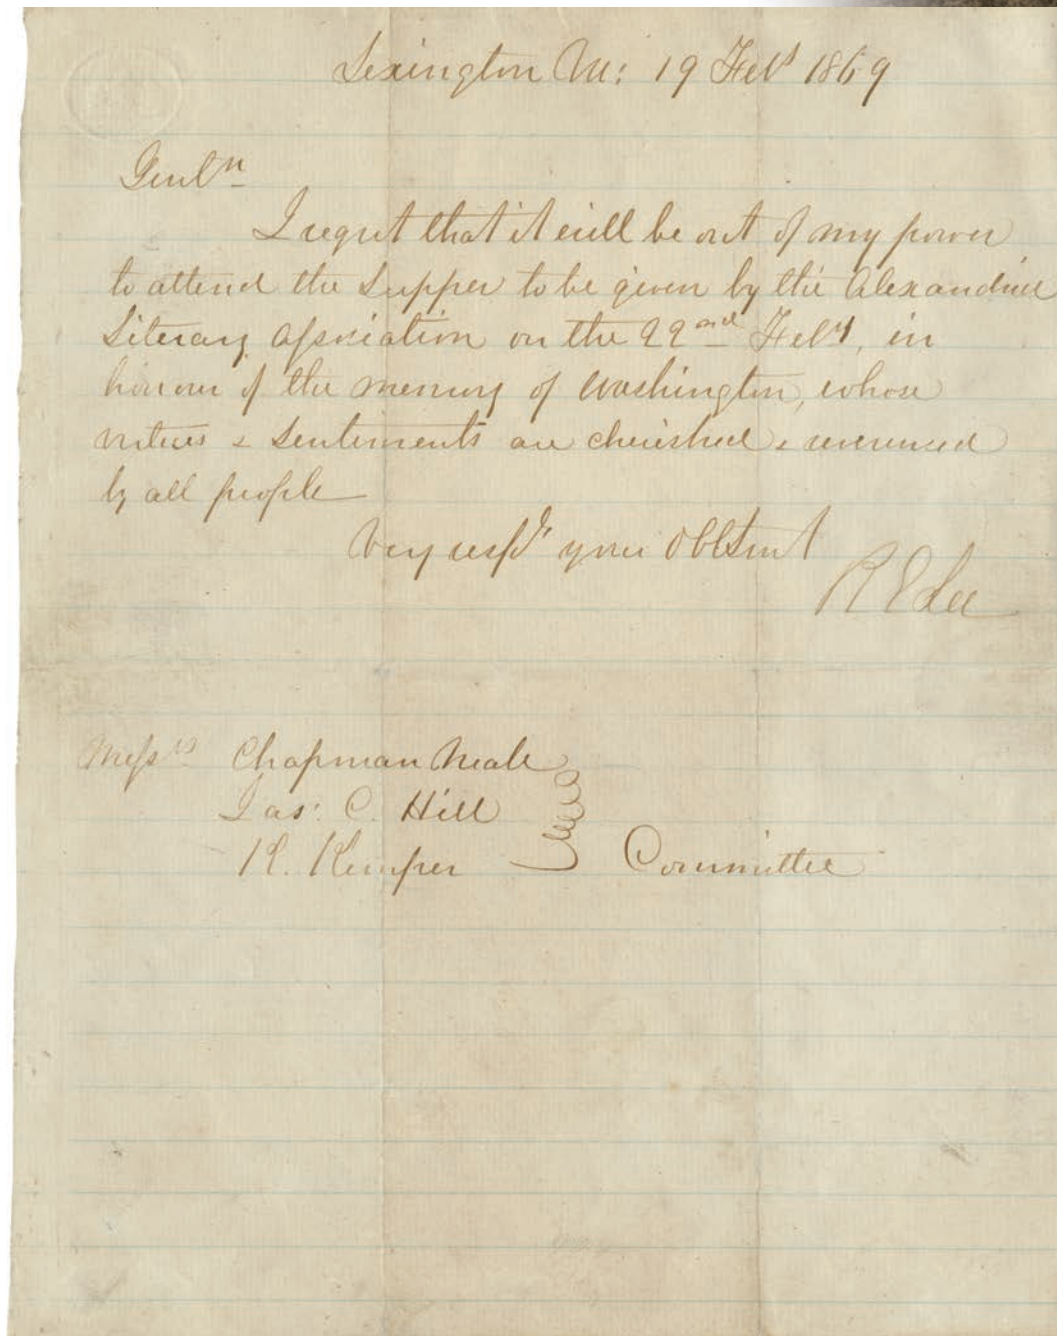 Lexington Va: 19 Feby 1869
Gentn
I regret that it will be out of my power
to attend the Supper to be given by the Alexandria
Literary Association on the 22nd Feby, in
honour of the memory of Washington, whose
virtues & Sentiments are cherished & reverenced
by all people
Very respy your Obt Servt
R E Lee
Messrs Chapman Neale
Jas: C. Hill
K. Kemper Committee